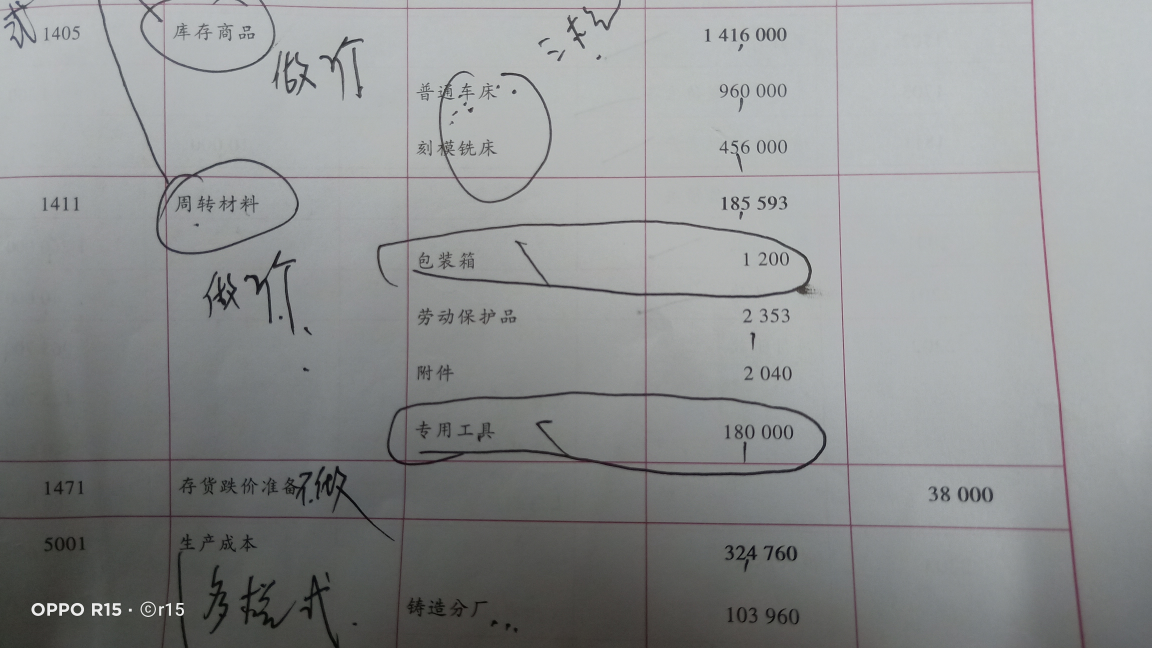 式 1405 库存商品 1 416 000
做价
普通车床 960 000
刻模铣床 456 000
1411 周转材料 185 593
包装箱 1 200
做价
劳动保护品 2 353
附件 2 040
专用工具 180 000
1471 存货跌价准备 不做 38 000
5001 生产成本 324 760
多栏式
铸造分厂 103 960
OPPO R15 · ⓒr15